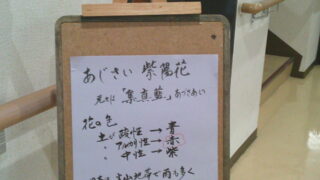 あじさい 紫陽花
元々は「集真藍」あづさあい
花の色
土が 酸性→青
〃 アルカリ性→赤
〃 中性→紫
雨も多く